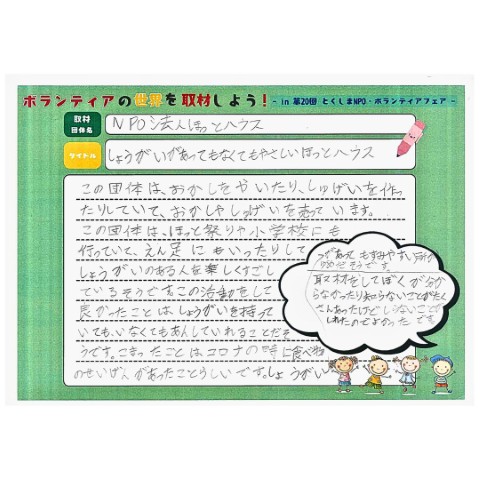 ボランティアの世界を取材しよう！ - in 第20回 とくしまNPO・ボランティアフェア -
取材団体名
NPO法人ほっとハウス
タイトル
しょうがいがあってもなくてもやさしいほっとハウス
この団体は、おかしをやいたり、しゅげいを作っ
たりしていて、おかしやしゅげいを売っています。
この団体は、ほっと祭りや小学校にも
行っていて、えん足にもいったりして
しょうがいのある人を楽しくすごし
ているそうです。この活動をして
良かったことはしょうがいを持って
いても、いなくてもあんしていれることだそ
うです。こまったことはコロナの時に食べ物
のせいげんがあったことらしいです。しょうがい
があってもすみやすい
だそうです。
取材をしてぼくが分か
らなかったり知らないことがたく
さんあったけどしらないことが
しれたのでよかったです